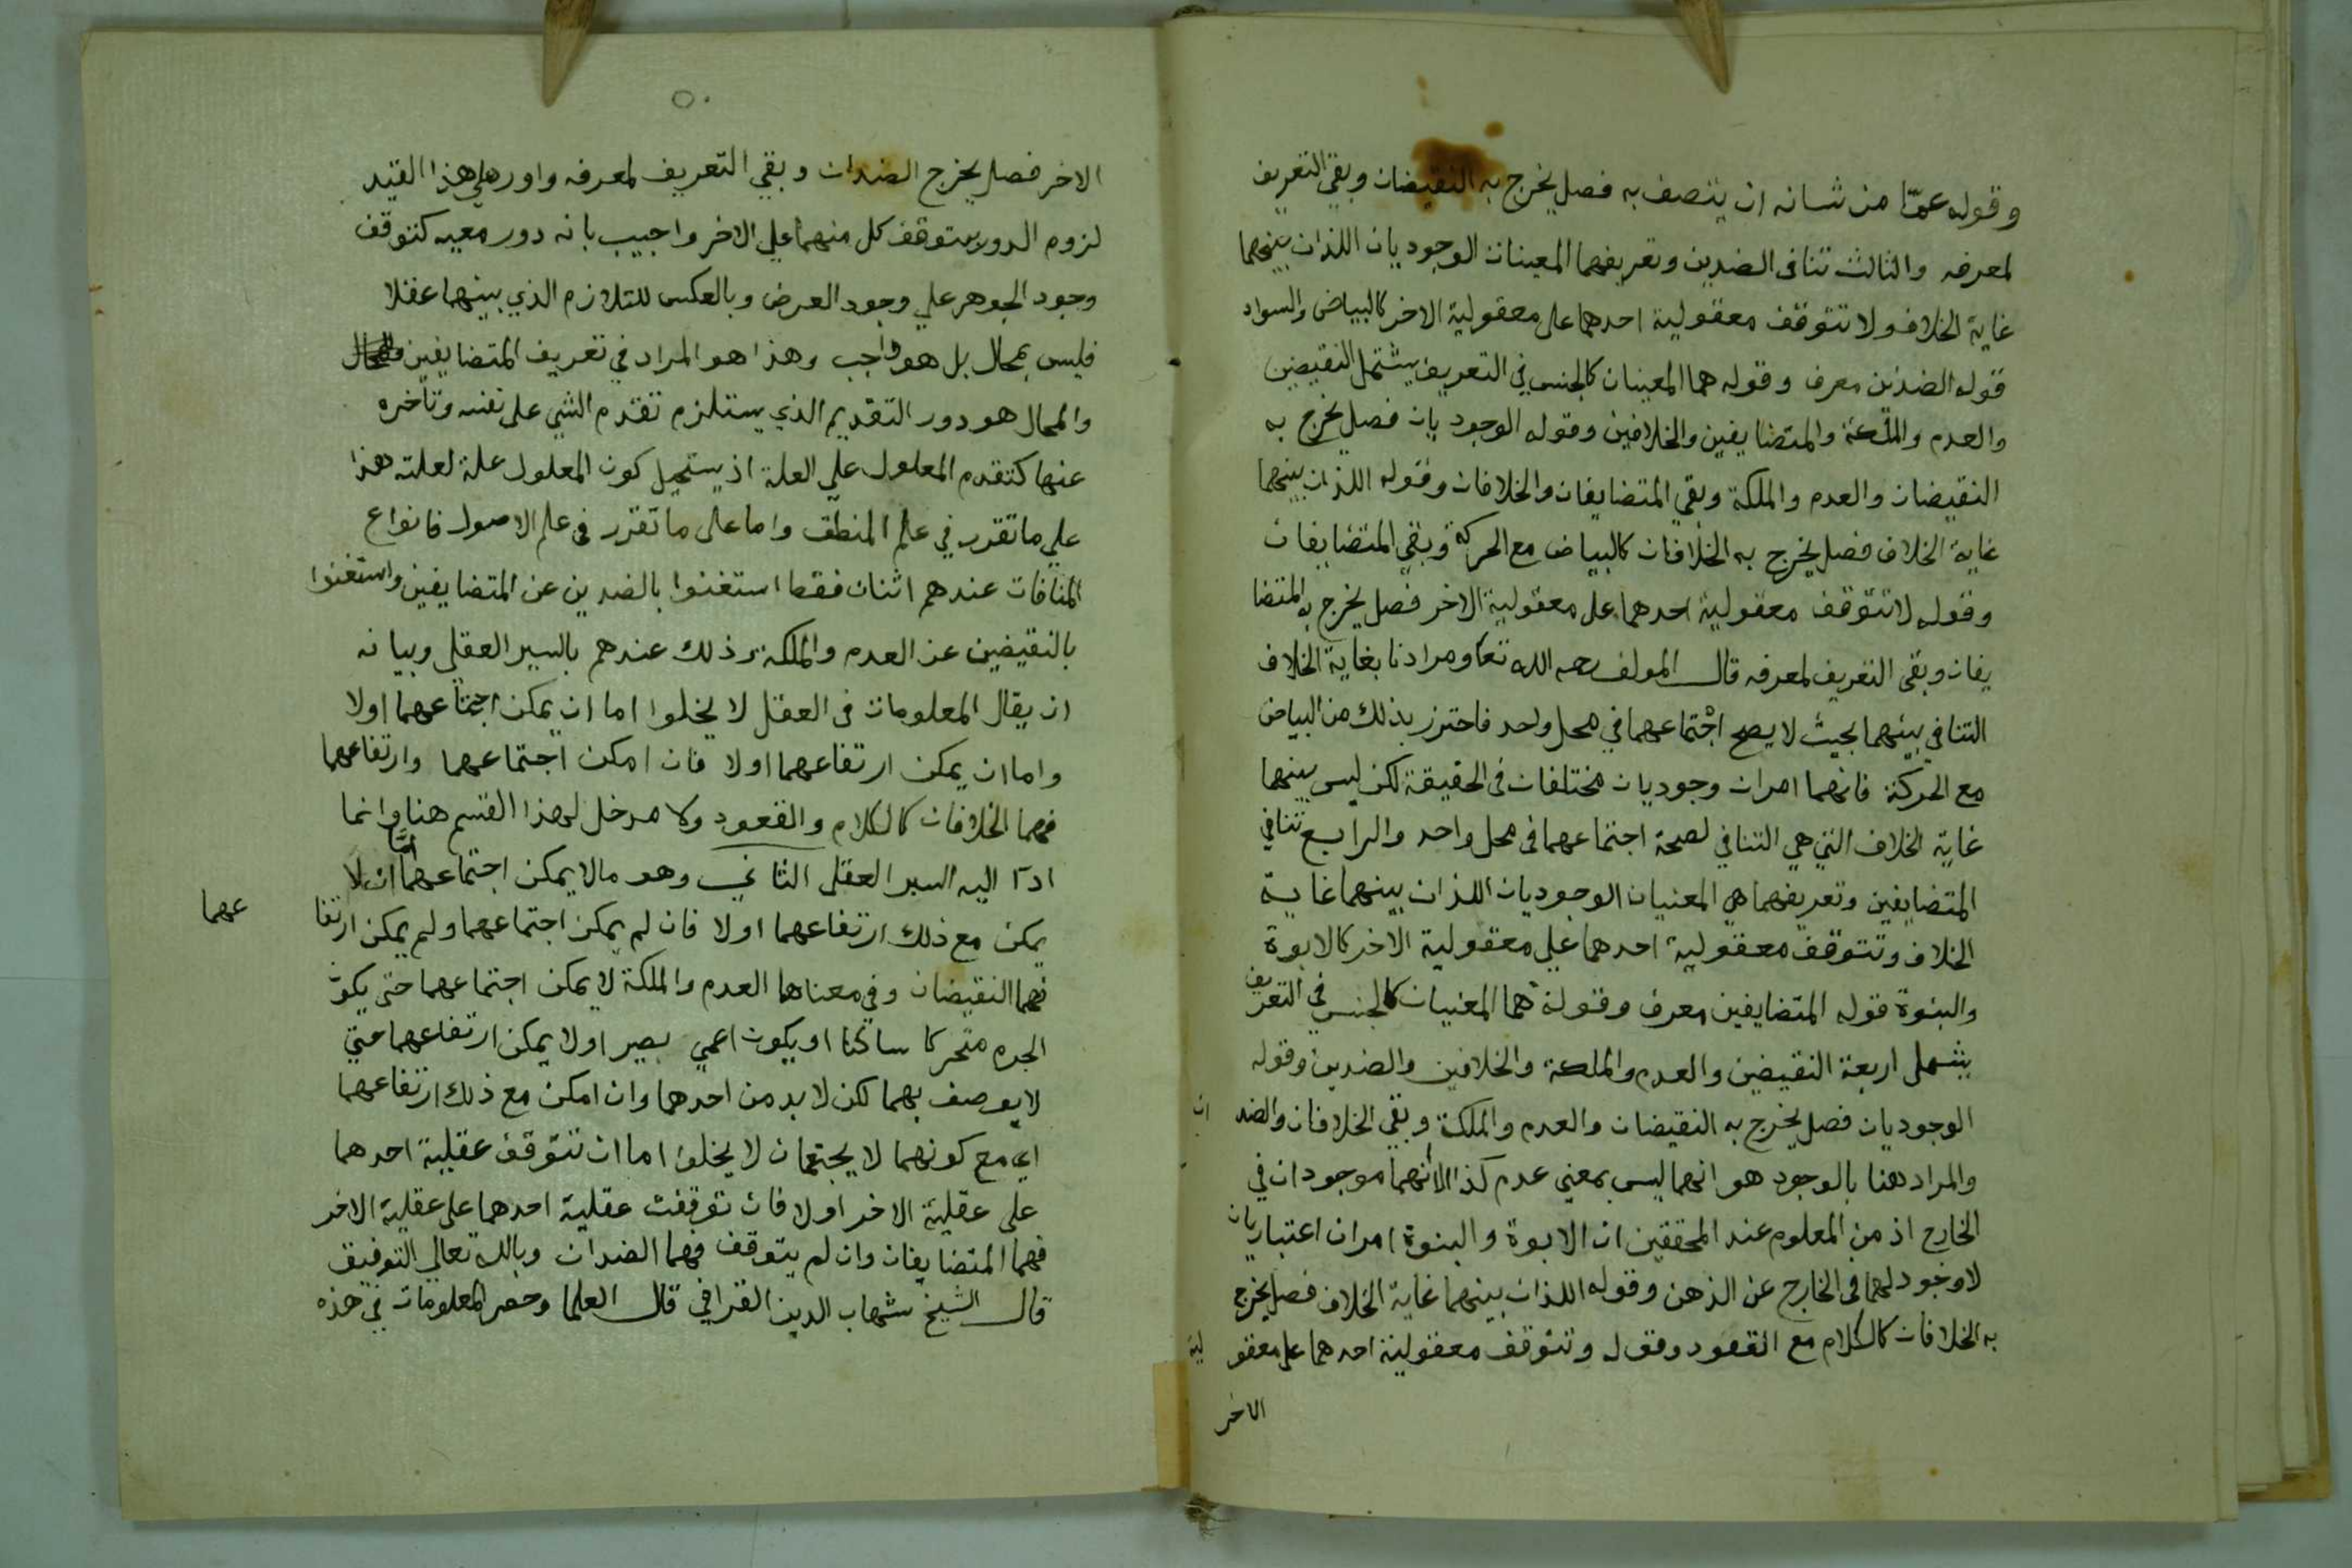 وقوله عمّا من شانه ان يتصف به فصل يخرج به النقيضان وبقي التعريف
لمعرفه والثالث تنافى الضدين وتعريفهما المعينات الوجوديان اللذان بينهما
غاية الخلاف ولا تتوقف معقولية احدهما على معقولية الاخر كالبياض والسواد
قوله الضدين معرف وقوله هما المعينان كالجنس في التعريف يشتمل النقيضين
والعدم والملكة والمتضايفين والخلافين وقوله الوجوديان فصل يخرج به
النقيضان والعدم والملكة وبقي المتضايفان والخلافان وقوله اللذان بينهما
غاية الخلاف فصل يخرج به الخلافان كالبياض مع الحركة وبقي المتضايفان
وقوله لا تتوقف معقولية احدهما على معقولية الاخر فصل يخرج به المتضا
يفان وبقى التعريف لمعرفه قال المولف رحمه الله تعا ومرادنا بغاية الخلاف
التنافي بينهما بحيث لا يصح اجتماعهما في محل واحد فاحترز بذلك من البياض
مع الحركة فانهما امران وجوديان مختلفان فى الحقيقة لكن ليس بينهما
غاية الخلاف التي هي التنافي لصحة اجتماعهما فى محل واحد والرابع تنافي
المتضايفين وتعريفهما هي المعنيان الوجوديان اللذان بينهما غاية
الخلاف وتتوقف معقولية احدهما علي معقولية الاخر كالابوة
والبنوة قوله المتضايفين معرف وقوله هما المعنيان كالجنس في التعريف
يشمل اربعة النقيضين والعدم والملكة والخلافين والضدين وقوله
الوجوديان فصل يخرج به النقيضان والعدم والملكة وبقي الخلافان والضد ان
والمراد هنا بالوجود هو انهما ليس بمعني عدم كذا لانهما موجودان في
الخارج اذ من المعلوم عند المحققين ان الابوة والبنوة امران اعتباريان
لا وجود لهما فى الخارج عن الذهن وقوله اللذان بينهما غاية الخلاف فصل يخرج
به الخلافان كالكلام مع القعود وقوله وتتوقف معقولية احدهما على معقو لية
الاخر
٥٠
الاخر فصل يخرج الضدان وبقي التعريف لمعرفه واورد علي هذا القيد
لزوم الدور بتوقف كل منهما علي الاخر واجيب بانه دور معيه كتوقف
وجود الجوهر علي وجود العرض وبالعكس للتلازم الذي بينهما عقلا
فليس بمحال بل هو واجب وهذا هو المراد في تعريف المتضايفين
والمحال هو دور التقديم الذي يستلزم تقدم الشي على نفسه وتأخره
عنها كتقدم المعلول علي العلة اذ يستحيل كون المعلول علة لعلته هذا
علي ما تقرر في علم المنطق واما على ما تقرر فى علم الاصول فانواع
المنافات عندهم اثنان فقط استغنوا بالضدين عن المتضايفين واستغنوا
بالنقيضين عن العدم والملكة وذلك عندهم بالسير العقلي وبيانه
ان يقال المعلومات فى العقل لا يخلوا اما ان يمكن اجتماعهما اولا
واما ان يمكن ارتفاعهما اولا فان امكن اجتماعهما وارتفاعهما
فهما الخلافات كالكلام والقعود ولا مدخل لهذا القسم هنا وانما
ادا اليه السبر العقلى الثاني وهو مالا يمكن اجتماعهما امّا ان لا
يمكن مع ذلك ارتفاعهما اولا فان لم يمكن اجتماعهما ولم يمكن ارتفا عهما
فهما النقيضان وفي معناهما العدم والملكة لا يمكن اجتماعهما حتى يكون
الجرم متحركا ساكنا او يكون اعمي بصيرا ولا يمكن ارتفاعهما حتي
لا يوصف بهما لكن لا بد من احدهما وان امكن مع ذلك ارتفاعهما
اي مع كونهما لا يجتمعان لا يخلوا اما ان تتوقف عقلية احدهما
على عقلية الاخر اولا فان توقفت عقلية احدهما على عقلية الاخر
فهما المتضايفان وان لم يتوقف فهما الضدان وبالله تعالي التوفيق
قال الشيخ شهاب الدين القرافي قال العلما وحصر المعلومات في هذه